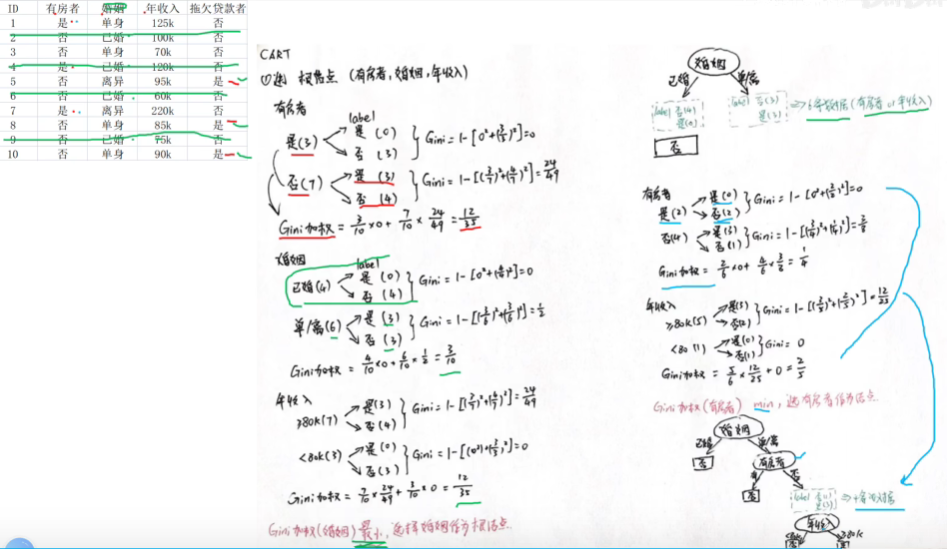 ID 有房者 婚姻 年收入 拖欠贷款者
1 是 单身 125k 否
2 否 已婚 100k 否
3 否 单身 70k 否
4 是 已婚 120k 否
5 否 离异 95k 是
6 否 已婚 60k 否
7 是 离异 220k 否
8 否 单身 85k 是
9 否 已婚 75k 否
10 否 单身 90k 是
CART
①选 根节点 (有房者, 婚姻, 年收入)
有房者
label
是(3) 是(0)
否(3)
Gini = 1-[0²+(3/3)²]=0
否(7) 是(3)
否(4)
Gini = 1-[(3/7)²+(4/7)²]=24/49
Gini加权 = 3/10×0+7/10×24/49=12/35
婚姻
label
已婚(4) 是(0)
否(4)
Gini = 1-[0²+(4/4)²]=0
单/离(6) 是(3)
否(3)
Gini = 1-[(3/6)²+(3/6)²]=1/2
Gini加权 = 4/10×0+6/10×1/2=3/10
年收入
≥80k(7) 是(3)
否(4)
Gini = 1-[(3/7)²+(4/7)²]=24/49
<80k(3) 是(0)
否(3)
Gini = 1-[(0²)+(3/3)²]=0
Gini加权 = 7/10×24/49+3/10×0=12/35
Gini加权(婚姻)最小, 选择婚姻作为根结点
婚姻
已婚 单/离
label 否(4)
是(0)
label 否(3)
是(3)
(有房者 or 年收入)
否
有房者
是(2) 是(0)
否(2)
Gini = 1-[0²+(2/2)²]=0
否(4) 是(3)
否(1)
Gini = 1-[(3/4)²+(1/4)²]=3/8
Gini加权 = 2/6×0+4/6×3/8=1/4
年收入
≥80k(5) 是(3)
否(2)
Gini = 1-[(3/5)²+(2/5)²]=12/25
<80(1) 是(0)
否(1)
Gini = 0
Gini加权 = 5/6×12/25+0=2/5
Gini加权(有房者) min, 选有房者作为结点
婚姻
已婚 单/离
否 有房者
是 否
否 label 否(1)
是(3)
年收入
≥80k